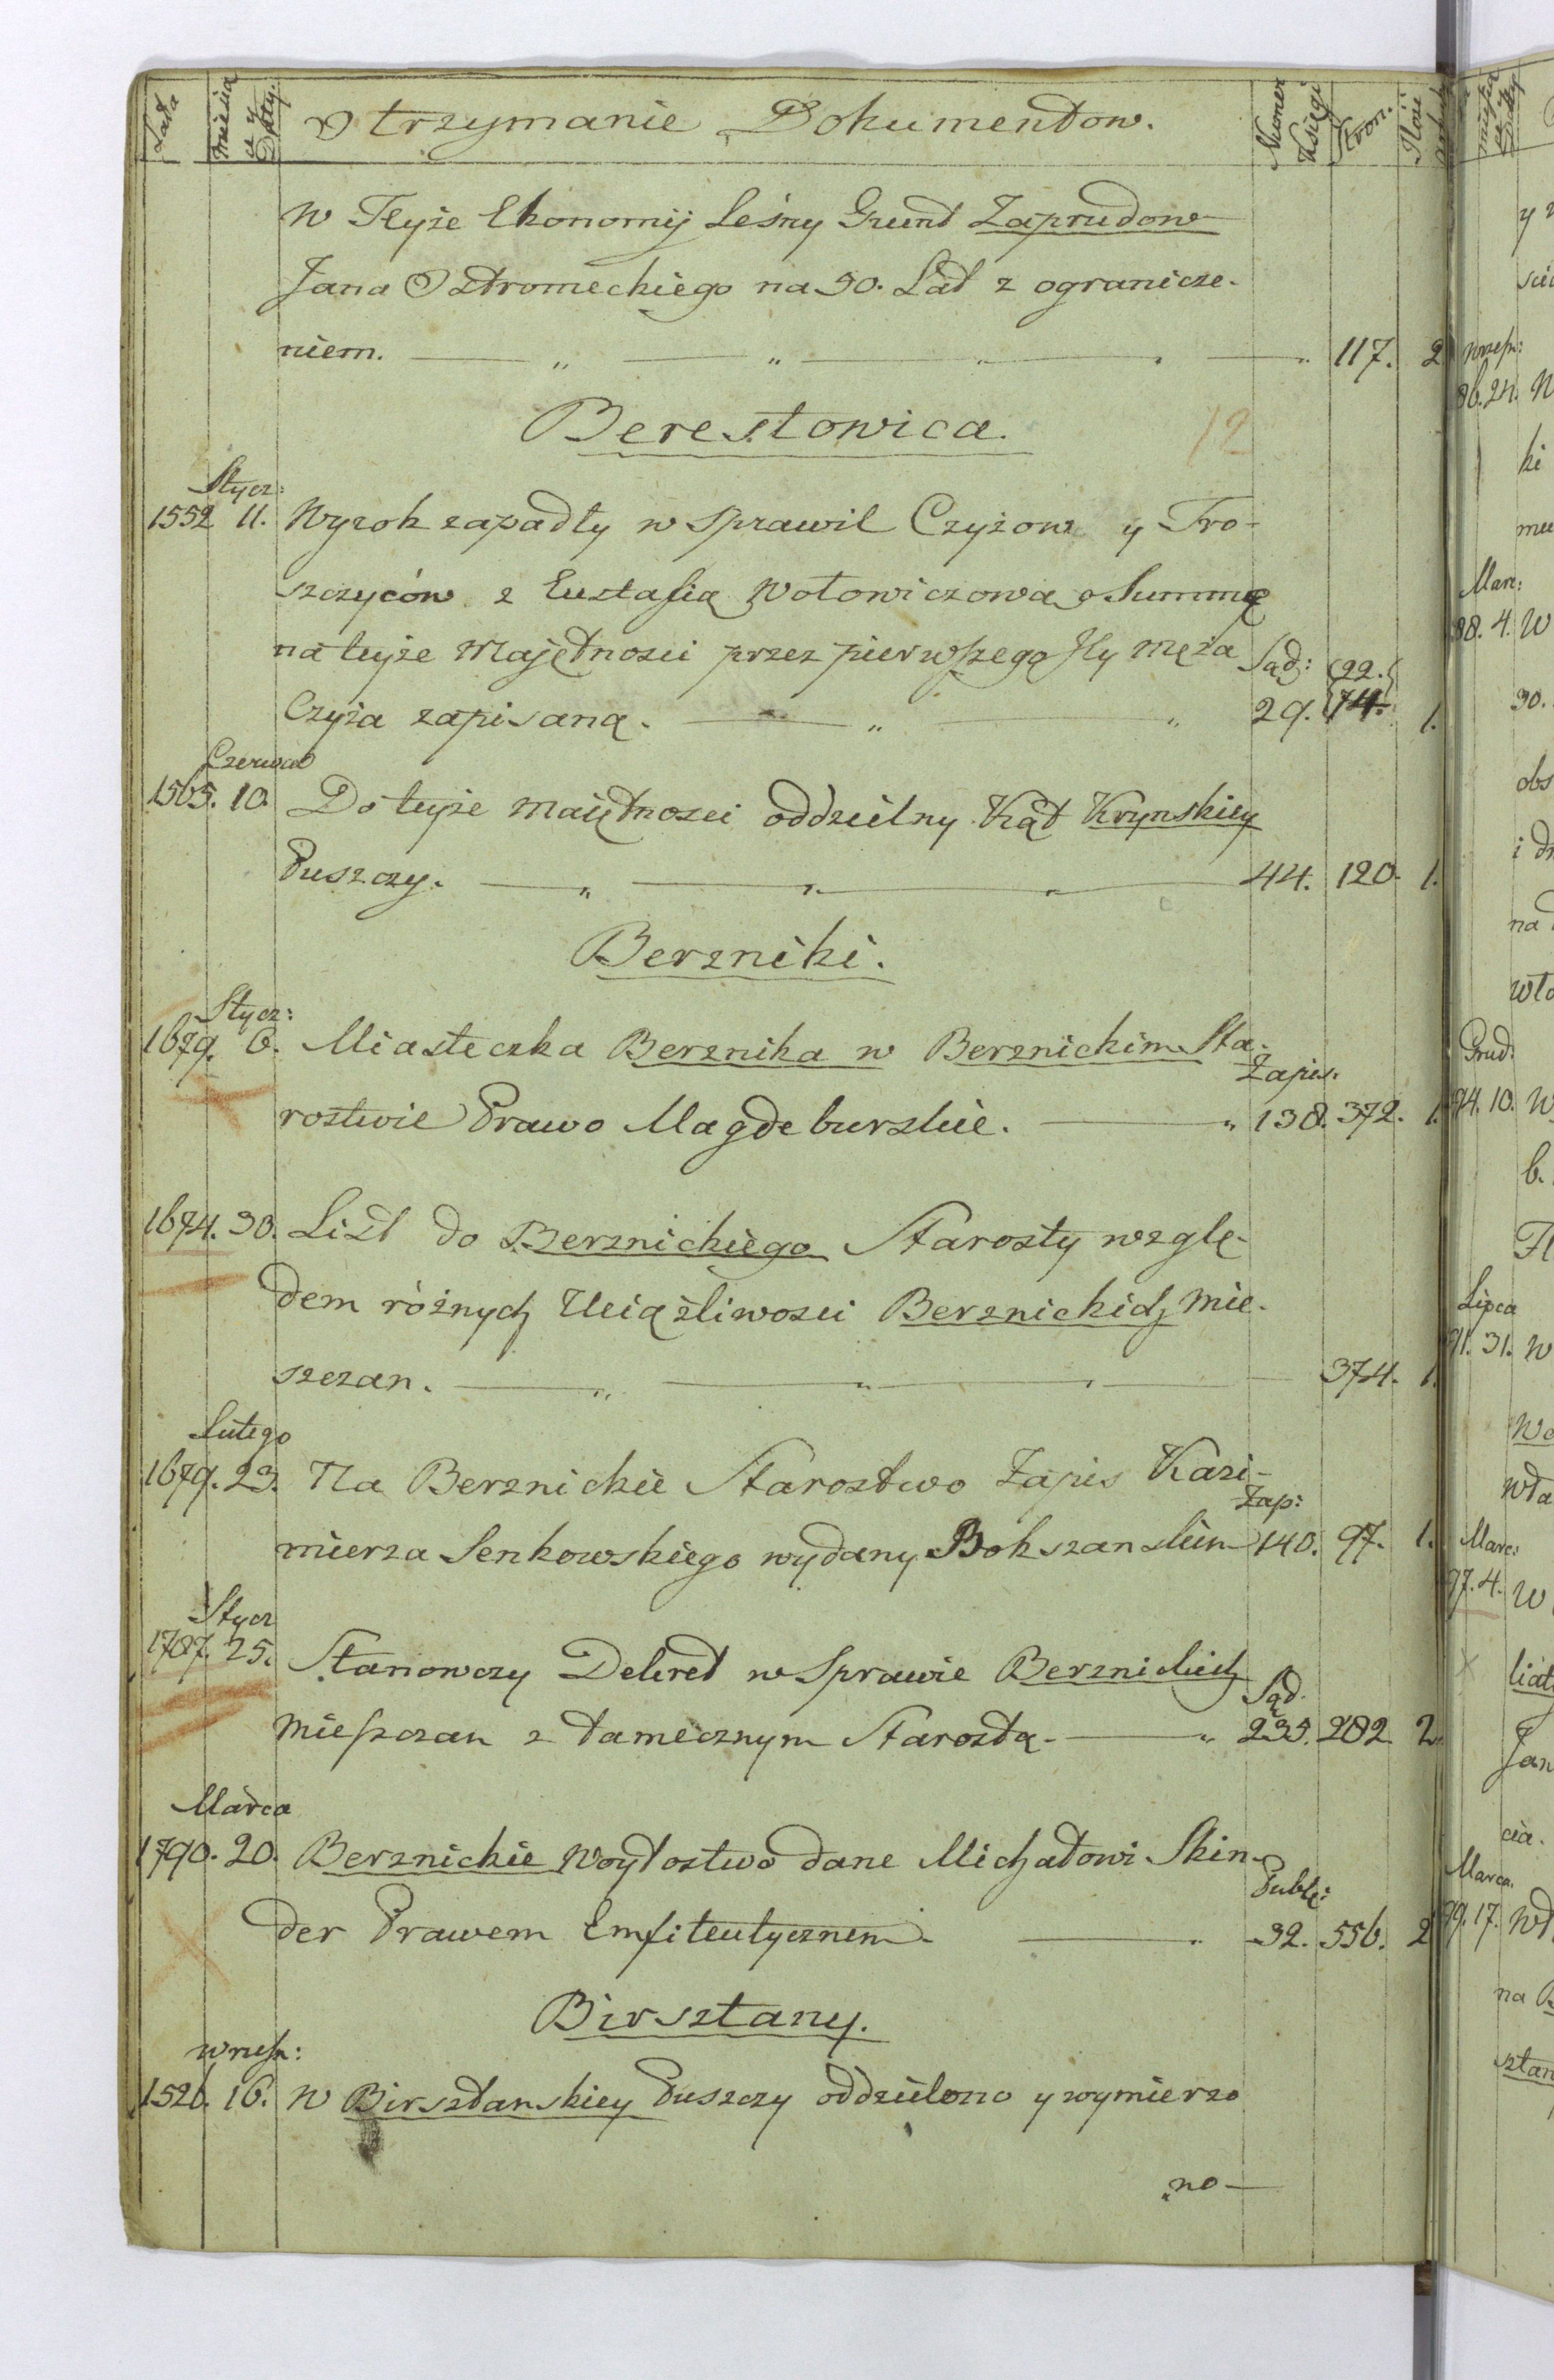 Lata Miesiące y Daty. Otrzymanie Dokumentow. Numer Ksiegi Stron. Ilość
w Teyże Ekonomij Leśny Grunt Zaprudow
Jana Ostromeckiego na 50. Lat z ogranicze-
niem. 117. 2
Berestowica. 12
Stycz:
1552 11. Wyrok zapadły w Sprawie Czyżow y Tro-
szczyców z Eustafią Wołowiczową o Summę
na teyże Majętnosci przez pierwszego Jey Męża Sąd: 22.
Czyża zapisaną. 29. 74. 1.
Czerwca
1565. 10. Do teyże Maiętnosci oddzielny Kąt Krynskiey
Puszczy. 44. 120. 1.
Berzniki.
Stycz:
1679. 6. Miasteczka Berznika w Berznickim Sta-
Zapis:
rostwie Prawo Magdeburskie. 138. 372. 1.
1674. 30. List do Berznickiego Starosty wzglę-
dem różnych Uciążliwosci Berznickich Mie-
szczan. 374. 1.
Lutego
1679. 23. Na Berznickie Starostwo Zapis Kazi-
Zap:
mierza Senkowskiego wydany Bokszanskim 140. 97. 1.
Stycz
1787. 25. Stanowczy Dekret w Sprawie Berznickich
Sąd.
Mieszczan z tamecznym Starostą. 235. 282. 2.
Marca
1790. 20. Berznickie Woytostwo dane Michałowi Skin-
Publ:
der Prawem Emfiteutycznem. 32. 556. 2
Birsztany.
wrześ:
1526. 16. w Birsztanskiey Puszczy oddzielono y wymierzo
no